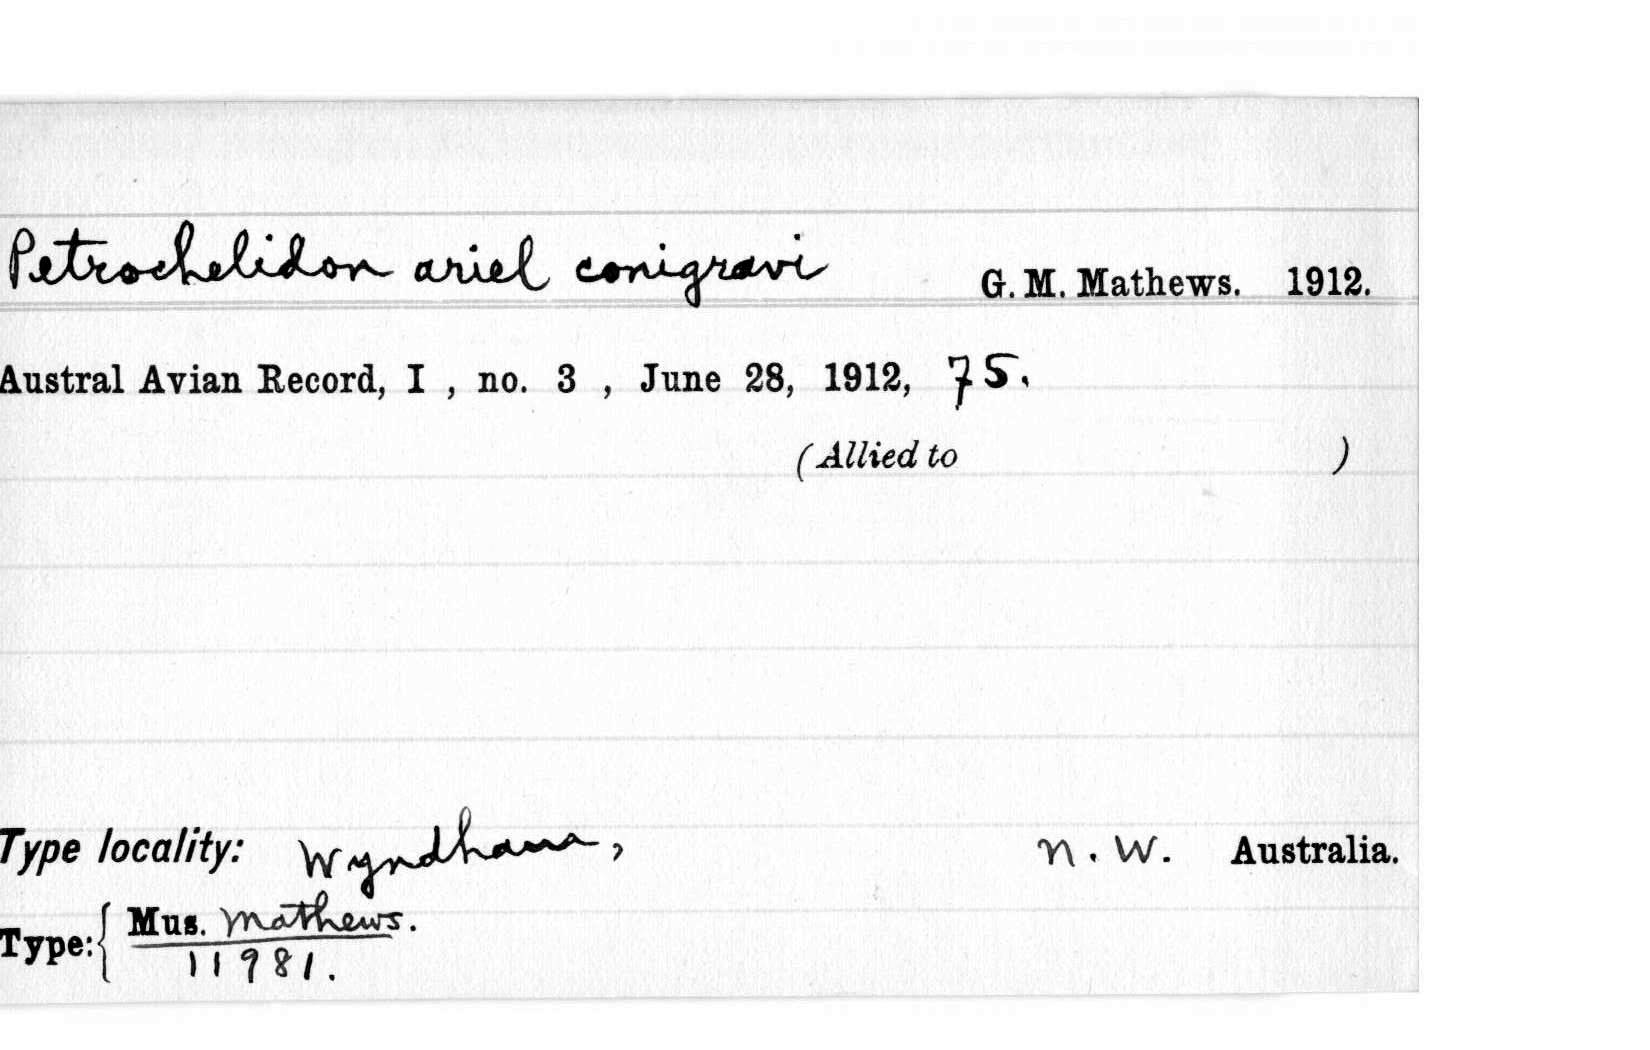 Petrochelidon ariel conigravi G. M. Mathews. 1912.
Austral Avian Record, I , no. 3 , June 28, 1912, 75.
(Allied to )
Type locality: Wyndham, N. W. Australia.
Type: { Mus. Mathews.
11981.